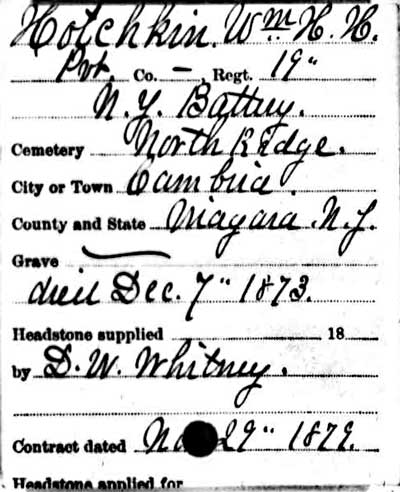 Hotchkin, Wm H. H.
Pvt. Co. —, Regt. 19"
N.Y. Battry.
Cemetery North Ridge.
City or Town Cambria.
County and State Niagara N.Y.
Grave
died Dec. 7" 1873.
Headstone supplied 18
by D. W. Whitney.
Contract dated 29" 1879.
Headstone applied for